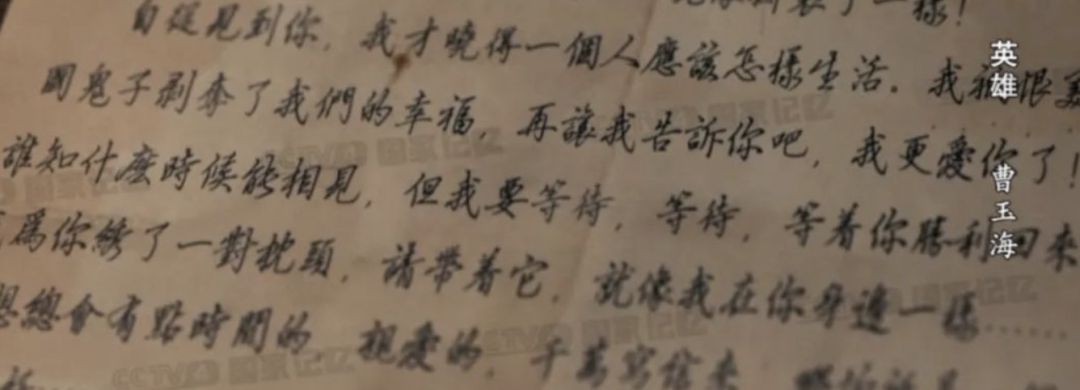 一樣!
自從見到你，我才曉得一個人應該怎樣生活。我 恨美
國鬼子剥奪了我們的幸福，再讓我告訴你吧，我更愛你了!
誰知什麽時候能相見，但我要等待，等待，等着你勝利回來
爲你綉了一對枕頭，請帶着它，就像我在你身邊一樣……
想總會有點時間的 親愛的，千萬寫信來
英雄
曹玉海